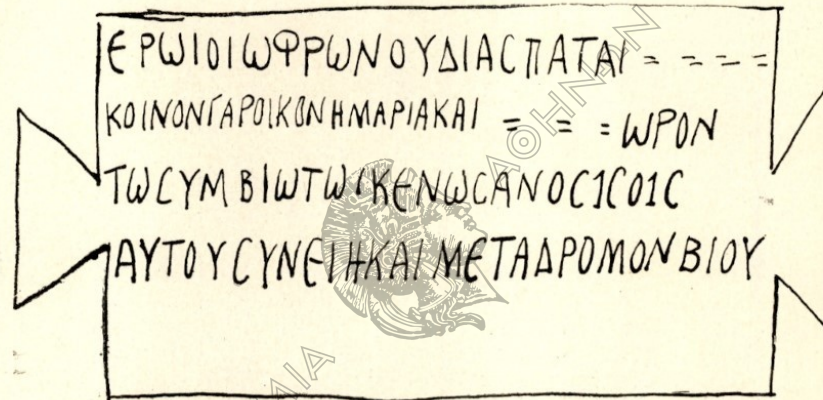 ΕΡΩΙΟΙΩΦΡΩΝΟΥΔΙΑCΠΑΤΑΙ = = = =
ΚΟΙΝΟΝΓΑΡΟΙΚΟΝΗΜΑΡΙΑΚΑΙ = = = ΩΡΟΝ
ΤΩCΥΜΒΙΩΤΩΙΚΕΝΩCΑΝΟC1CΟ1C
ΑΥΤΟΥCΥΝΕΙΗΚΑΙΜΕΤΑΔΡΟΜΟΝΒΙΟΥ